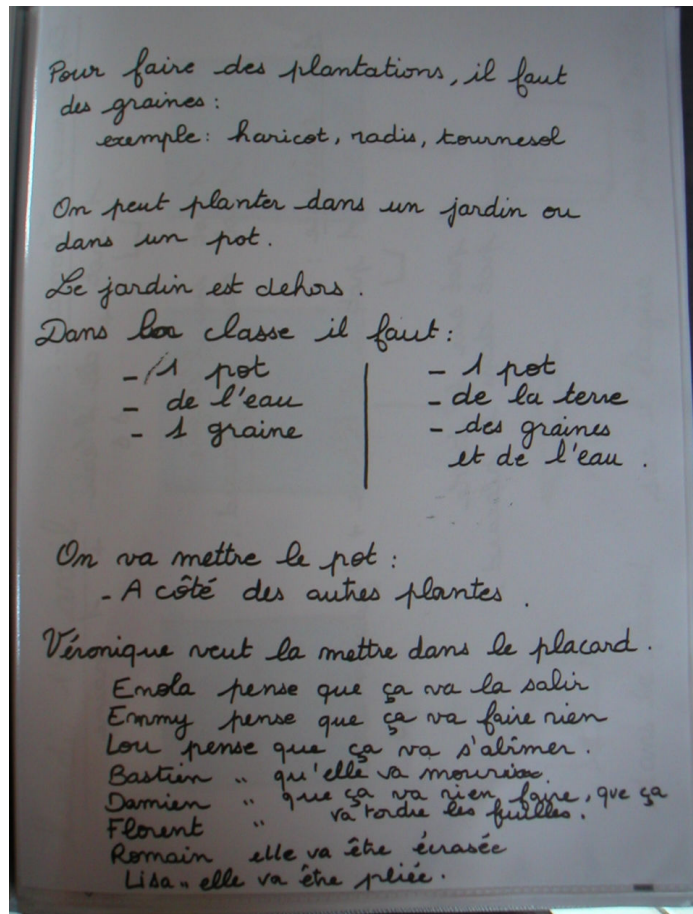 Pour faire des plantations, il faut
des graines :
exemple : haricot, radis, tournesol
On peut planter dans un jardin ou
dans un pot.
Le jardin est dehors.
Dans la classe il faut :
- 1 pot
- de l'eau
- 1 graine
- 1 pot
- de la terre
- des graines
et de l'eau.
On va mettre le pot :
- A côté des autres plantes.
Véronique veut la mettre dans le placard.
Enola pense que ça va la salir
Emmy pense que ça va faire rien
Lou pense que ça va s'abîmer.
Bastien " qu'elle va mourir.
Damien " que ça va rien faire, que ça
va tordre les feuilles.
Florent "
Romain elle va être écrasée
Lisa " elle va être pliée.